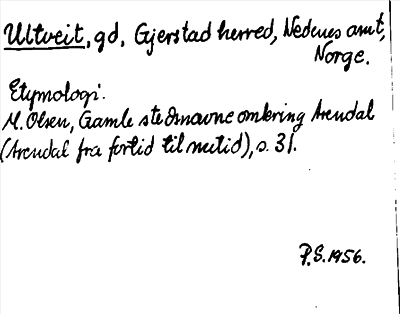 Ultveit, gd, Gjerstad herred, Nedenes amt,
Norge.
Etymologi.
M. Olsen, Gamle stedsnavne omkring Arendal
(Arendal fra fortid til nutid), s. 31.
P.S. 1956.